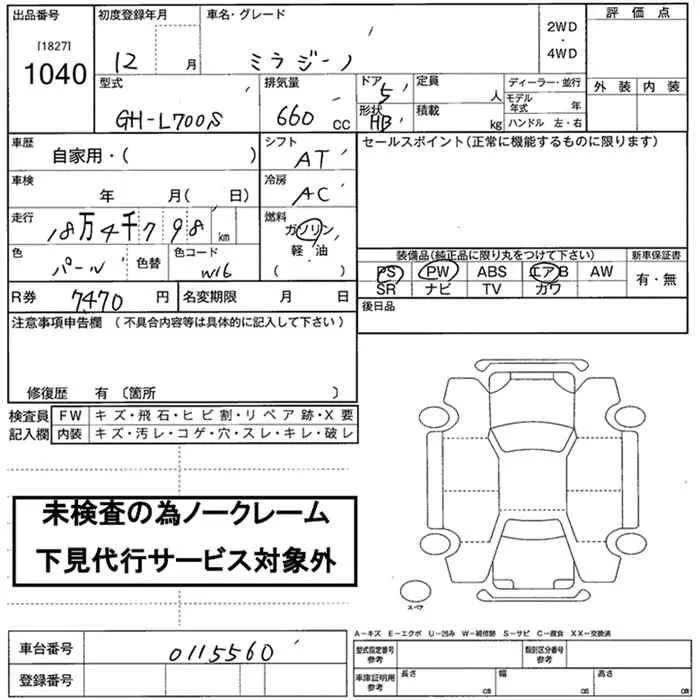 出品番号 初度登録年月 車名・グレード 2WD ・ 4WD 評価点
[1827]
1040
12 月 ミラジーノ
外装 内装
型式 排気量 ドア 定員 ディーラー・並行
GH-L700S 660 CC 5 人 モデル年式 年
形状 積載
HB kg ハンドル 左・右
車歴 シフト セールスポイント(正常に機能するものに限ります)
自家用・( ) AT
車検 冷房
年 月( 日) AC
走行 燃料
18万4千798 km ガソリン
軽・油
( )
色 色替 色コード
パール W16
装備品(純正品に限り丸をつけて下さい) 新車保証書
PS PW ABS エアB AW 有・無
SR ナビ TV ガワ
R券 7470 円 名変期限 月 日
後日品
注意事項申告欄 (不具合内容等は具体的に記入して下さい)
修復歴 有 〔箇所 〕
検査員 FW キズ・飛石・ヒビ割・リペア跡・X要
記入欄 内装 キズ・汚レ・コゲ・穴・スレ・キレ・破レ
未検査の為ノークレーム
下見代行サービス対象外
スペア
A-キズ E-エクボ U-凹み W-補修跡 S-サビ C-腐食 XX-交換済
車台番号 0115560
登録番号
型式指定番号 参考 類別区分番号 参考
車庫証明用 参考 長さ cm 幅 cm 高さ cm